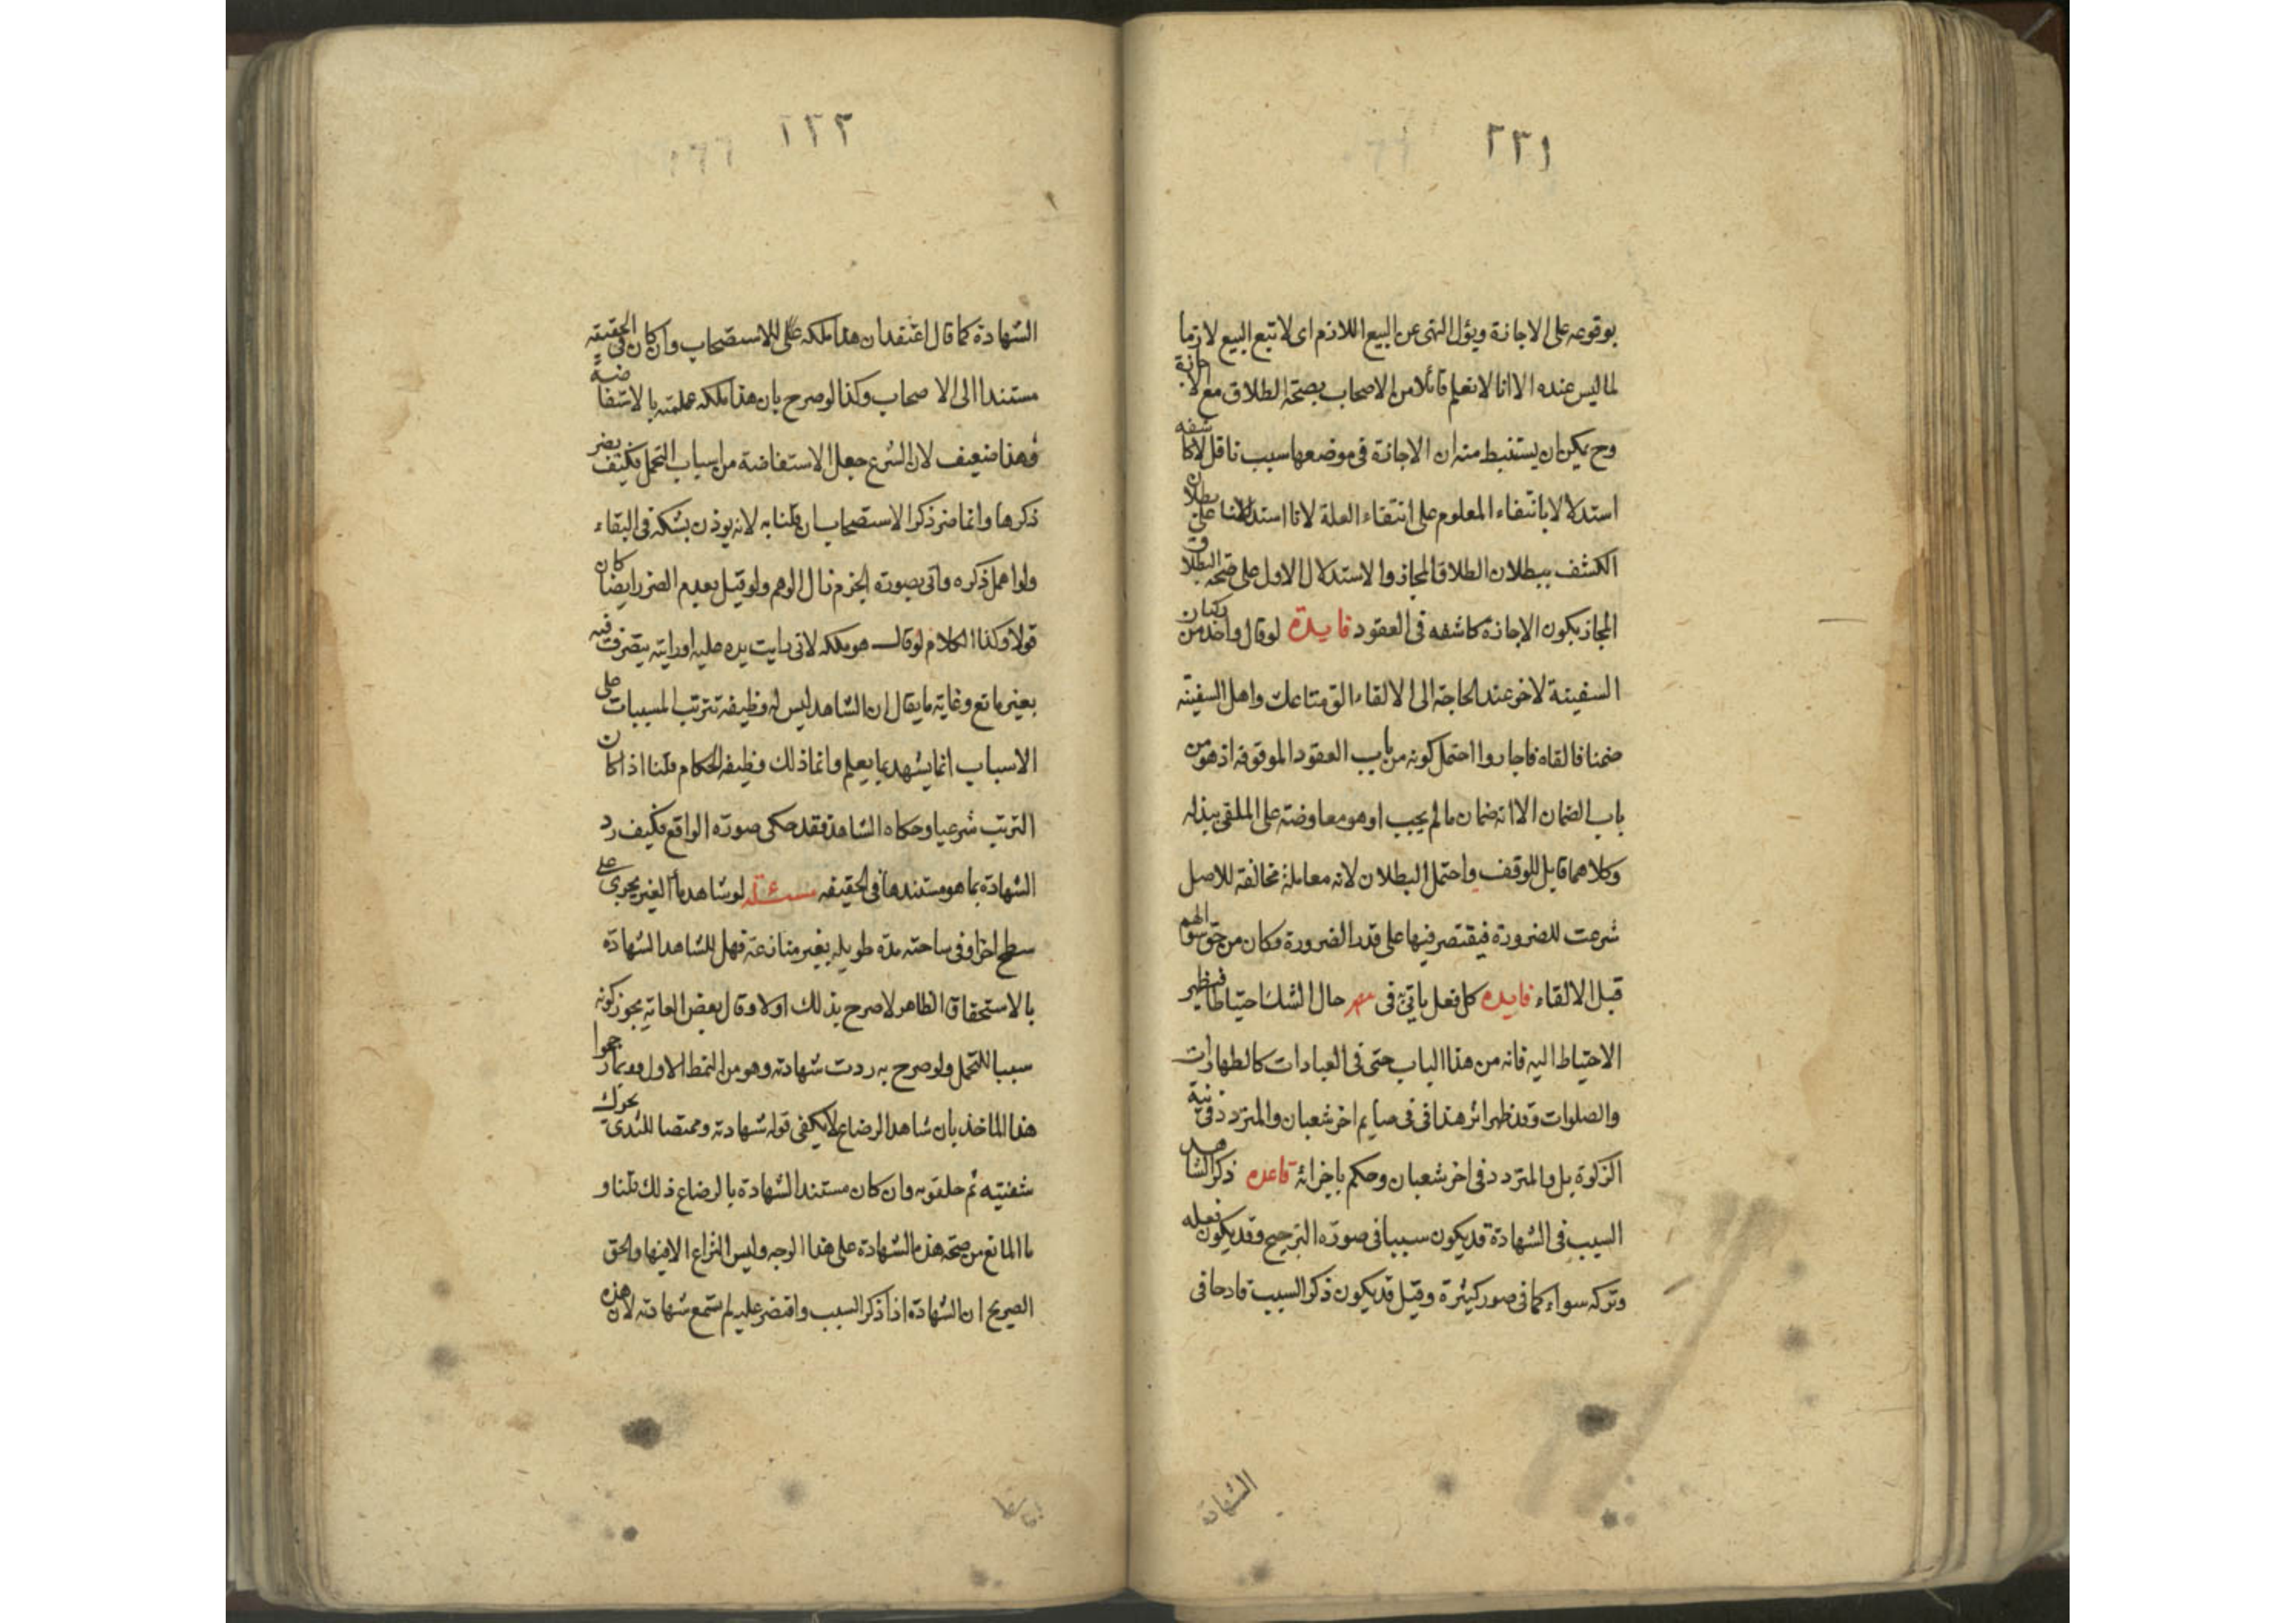 ٢٢١
بوقوعه على الاجازة ويؤل النهى عن البيع اللازم اى لا تبع البيع لازما
لما ليس عنده الا انا لا نعلم قائلا من الاصحاب بصحة الطلاق مع الاجازة
وح يمكن ان يستنبط منه ان الاجازة فى موضعها سبب ناقل لا كاشفه
استدلالا بانتفاء المعلوم على انتفاء العلة لانا استدللنا على بطلان
الكشف ببطلان الطلاق المجاز والاستدلال الاول على صحة البطلاق
المجاز بكون الاجازة كاشفه فى العقود فايدة لو قال واحد من ركبان
السفينة لاخر عند الحاجة الى الالقاء الق متاعك واهل السفينة
ضمنا فالقاه فاجازوا احتمل كونه من باب العقود الموقوفه اذ هو من
باب الضمان الا انه ضمان ما لم يجب او هو معاوضة على الملقى ببذله
وكلاهما قابل للوقف واحتمل البطلان لانه معاملة مخالفة للاصل
شرعت للضرورة فيقتصر فيها على قدر الضرورة وكان من حق سؤالهم
قبل الالقاء فايده كل فعل ياتى به فى حال الشك احتياطا فظهر
الاحتياط اليه فانه من هذا الباب حتى فى العبادات كالطهارات
والصلوات وقد ظهر اثر هذا فى فى صايم اخر شعبان والمتردد فى نية
الزكوة بل والمتردد فى اخر شعبان وحكم باجزائه قاعده ذكر الشاهد
السبب فى الشهادة قد يكون سببا فى صورة الترجيح وقد يكون فعله
وتركه سواء كما فى صور كثيرة وقيل قد يكون ذكر السبب قادحا فى
الشهادة
٢٢٢
الشهادة كما قال اعتقد ان هذا ملكه على للاستصحاب وان كان فى الحقيقه
مستندا الى الا صحاب وكذا لو صرح بان هذا ملكه علمته بالاستفاضة
وهذا ضعيف لان الشرع جعل الاستفاضة من اسباب التحمل فكيف يضر
ذكرها وانما ضر ذكر الاستصحاب ان قلنا به لانه يوذن بشكه فى البقاء
ولو اهمل ذكره واتى بصورة الجزم زال الوهم ولو قيل بعدم الضرر ايضا كان
قولا وكذا الكلام لو قال هو ملكه لانى رايت يده عليه او رايته يتصرف فيه
بغير مانع وغايته ما يقال ان الشاهد ليس له وظيفه تترتب المسببات على
الاسباب انما يشهد بما يعلم وانما ذلك وظيفه الحكام قلنا اذا كان
الترتب شرعيا وحكاه الشاهد فقد حكى صورة الواقع فكيف رد
الشهادة بما هو مستندها فى الحقيقه مسئلة لو شاهد ماء الغير يجرى على
سطح اخر او فى ساحته مدة طويله بغير منازعة فهل للشاهد الشهادة
بالاستحقاق الظاهر لا صرح بذلك اولا وقال بعض العامة يجوز كونه
سببا للتحمل ولو صرح به ردت شهادته وهو من النمط الاول وربما رجحوا
هذا الماخذ بان شاهد الرضاع لا يكفى قوله شهادته وممتصا للثدى تحرك
شفتيه ثم حلقومه وان كان مستند الشهادة بالرضاع ذلك قلنا و
ما المانع من صحة هذه الشهادة على هذا الوجه وليس النزاع الا فيها والحق
الصريح ان الشهادة اذا ذكر السبب واقتصر عليه لم تسمع شهادته لان هذه